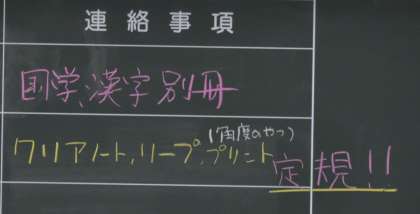 連絡事項
国学、漢字別冊
(角度のやつ)
クリアノート、リープ、プリント
定規!!